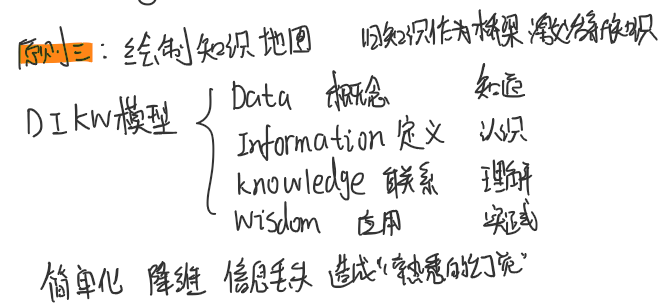 原则三：绘制知识地图 旧知识作为桥梁 激活新的知识
DIKW模型
Data 概念 知道
Information 定义 认识
knowledge 联系 理解
Wisdom 应用 实践
简单化 降维 信息丢失 造成“熟悉的幻觉”